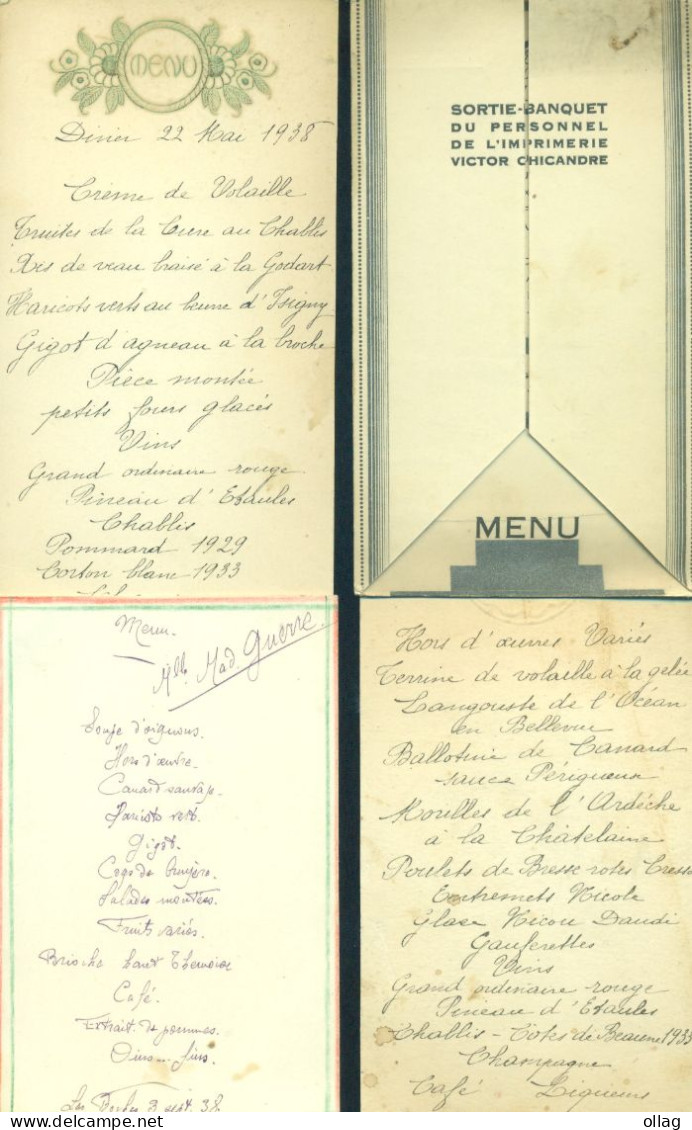 MENU
Diner 22 Mai 1938
Crème de Volaille
Truites de la Cure au Chablis
Ris de veau braisé à la Godart
Haricots verts au beurre d'Isigny
Gigot d'agneau à la broche
Pièce montée
petits fours glacés
Vins
Grand ordinaire rouge
Pineau d'Etaules
Chablis
Pommard 1929
Corton blanc 1933
SORTIE-BANQUET
DU PERSONNEL
DE L'IMPRIMERIE
VICTOR CHICANDRE
MENU
Menu.
Mlle Mad. Guerre.
Soupe d'oignons.
Hors d'œuvre.
Canard sauvage.
Haricots vert.
Gigot.
Coqs de bruyère.
Salades montées.
Fruits variés.
Brioche
Café.
Extrait de pommes.
Vins... fins.
Les 3 sept. 38
Hors d'œuvres Variés
Terrine de volaille à la gelée
Langouste de l'Océan
en Bellevue
Ballotine de Canard
sauce Périgueux
Morilles de l'Ardèche
à la Châtelaine
Poulets de Bresse rotes Cresso
Entremets Nicole
Glace Dandi
Gauferettes
Vins
Grand ordinaire rouge
Pineau d'Etaules
Chablis - Cotes de Beaune 1933
Champagne
Café Liqueurs